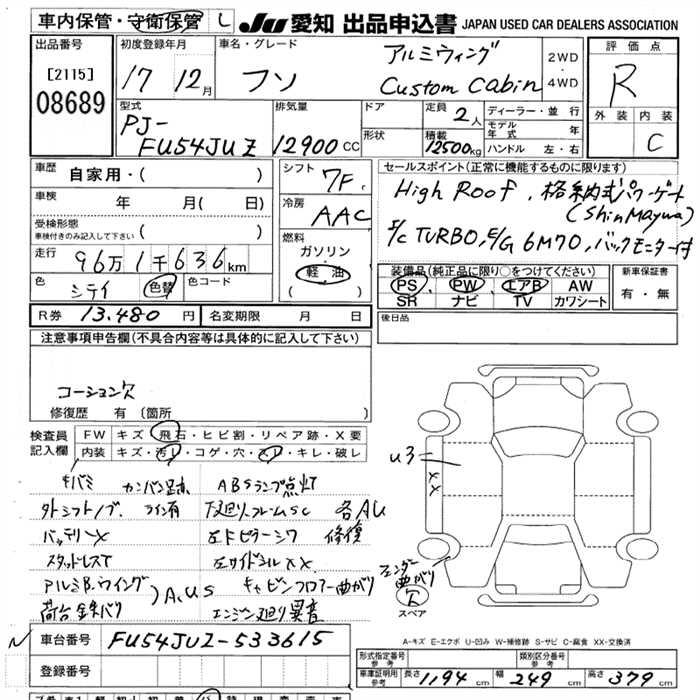 車内保管・守衛保管 し JU 愛知 出品申込書 JAPAN USED CAR DEALERS ASSOCIATION
出品番号 [2115] 08689
初度登録年月 17 12月
車名・グレード フソ アルミウィング Custom Cabin 2WD・4WD
評価点 R
外装 内装 C
型式 PJ-FU54JUZ
排気量 12900cc
ドア
形状
定員 2人
積載 12500kg
ディーラー・並行
モデル年式 年
ハンドル 左・右
車歴 自家用・( )
車検 年 月( 日)
受検形態 車検付きのみ記入して下さい ( )
走行 96万1千636km
色 シテイ 色替 色コード
シフト 7F
冷房 AAC
燃料 ガソリン・軽油 ( )
セールスポイント(正常に機能するものに限ります)
High Roof, 格納式パワーゲート
(ShinMaywa)
I/C TURBO, E/G 6M70, バックモニター付
装備品(純正品に限り○をつけてください)
PS PW エアB AW
SR ナビ TV カワシート
新車保証書 有・無
R券 13.480円 名変期限 月 日
後日品
注意事項申告欄(不具合内容等は具体的に記入して下さい)
コーション欠
修復歴 有 (箇所 )
検査員記入欄 FW キズ・飛石・ヒビ割・リペア跡・X要
内装 キズ・汚レ・コゲ・穴・スレ・キレ・破レ
キバミ カンバン跡 ABSランプ点灯
外シフトノブ ライン有 下廻り、フレームSC 各AU
バッテリーX 左Fピラーシワ 修復
スタッドレスT 左サイドシルXX
アルミB.ウイング A.U.S キャビンフロアー曲がり
荷台鉄バリ エンジン廻り異音
U3
XX
フェンダー曲がり
欠
スペア
A-キズ E-エクボ U-凹み W-補修跡 S-サビ C-腐食 XX-交換済
車台番号 FU54JUZ-533615
登録番号
形式指定番号 参考 類別区分番号 参考
車庫証明用 参考 長さ 1194cm 幅 249cm 高さ 379cm